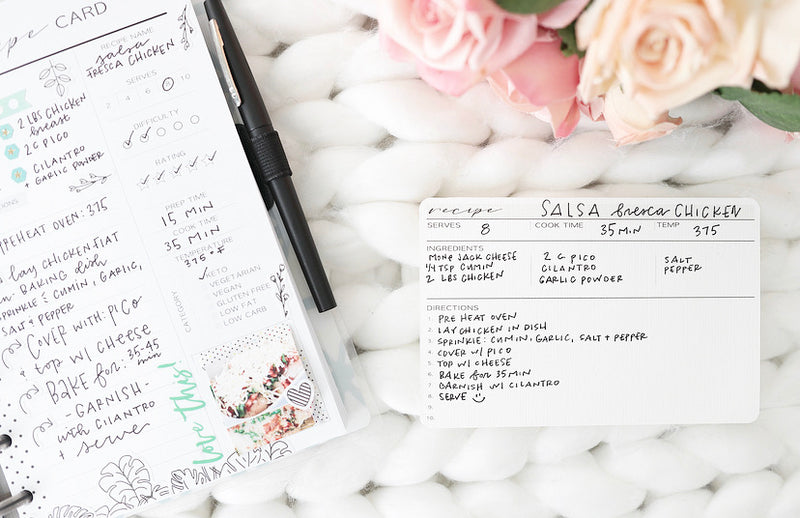 recipe CARD
RECIPE NAME
salsa
FRESCA CHICKEN
SERVES
2 4 6 8 10
DIFFICULTY
RATING
PREP TIME
15 MIN
COOK TIME
35 MIN
TEMPERATURE
375°F
CATEGORY
KETO
VEGETARIAN
VEGAN
GLUTEN FREE
LOW FAT
LOW CARB
2 LBS CHICKEN
breast
2 C PICO
CILANTRO
+ GARLIC POWDER
PREHEAT OVEN: 375
lay chicken flat
in BAKING dish
SPRINKLE: CUMIN, GARLIC,
SALT + PEPPER
COVER WITH: PICO
+ top w/ CHEESE
BAKE for: 35-45
min
- GARNISH -
with CILANTRO
+ serve
love this!
recipe SALSA fresca CHICKEN
SERVES 8 COOK TIME 35 MIN TEMP 375
INGREDIENTS
MONE JACK CHEESE 2 C PICO SALT
1/4 TSP CUMIN CILANTRO PEPPER
2 LBS CHICKEN GARLIC POWDER
DIRECTIONS
1. PRE HEAT OVEN
2. LAY CHICKEN IN DISH
3. SPRINKLE: CUMIN, GARLIC, SALT + PEPPER
4. COVER W/ PICO
5. TOP W/ CHEESE
6. BAKE for 35 MIN
7. GARNISH W/ CILANTRO
8. SERVE
9.
10.